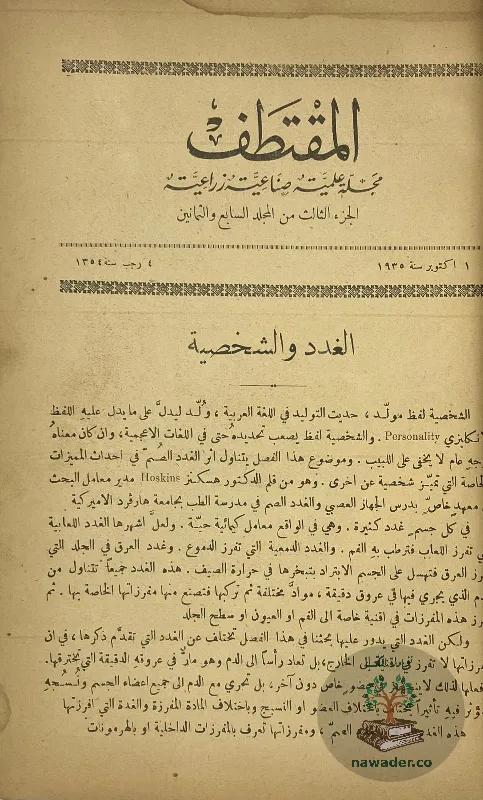 المقتطف
مجلة علمية صناعية زراعية
الجزء الثالث من المجلد السابع والثمانين
١ اكتوبر سنة ١٩٣٥
٤ رجب سنة ١٣٥٤
الغدد والشخصية
الشخصية لفظ مولَّد ، حديث التوليد في اللغة العربية ، وُلِّد ليدلَّ على ما يدل عليهِ اللفظ
Personality . والشخصية لفظ يصعب تحديدهُ حتى في اللغات الاعجمية ، وان كان معناهُ
عام لا يخفى على اللبيب . وموضوع هذا الفصل يتناول اثر الغدد الصُّم في احداث المميزات
التي تميّز شخصية عن اخرى . وهو من قلم الدكتور هسكنز Hoskins مدير معامل البحث
معهد خاصّ بدرس الجهاز العصبي والغدد الصم في مدرسة الطب بجامعة هارفرد الاميركية
في كل جسم غدد كثيرة . وهي في الواقع معامل كيمائية حيَّة . ولعلَّ اشهرها الغدد اللعابية
تفرز اللعاب فترطب بهِ الفم . والغدد الدمعية التي تفرز الدموع . وغدد العرق في الجلد التي
العرق فتهسل على الجسم الابتراد بتبخرها في حرارة الصيف . هذه الغدد جميعاً تتناول من
الذي يجري فيها في عروق دقيقة ، موادَّ مختلفة ثم تركبها فتصنع منها مفرزاتها الخاصة بها . ثم
هذه المفرزات في اقنية خاصة الى الفم او العيون او سطح الجلد
ولكن الغدد التي يدور عليها بحثنا في هذا الفصل تختلف عن الغدد التي تقدَّم ذكرها ، في ان
لا تفرز في الخارج ، بل تعاد رأساً الى الدم وهو مارٌّ في عروقهِ الدقيقة التي تخترقها .
لذلك خاص دون آخر ، بل تجري مع الدم الى جميع اعضاء الجسم
فيهِ العضو او النسيج وباختلاف المادة المفرزة والغدة التي افرزتها
هذه ، ومفرزاتها تعرف بالمفرزات الداخلية او بالهرمونات
nawader.co